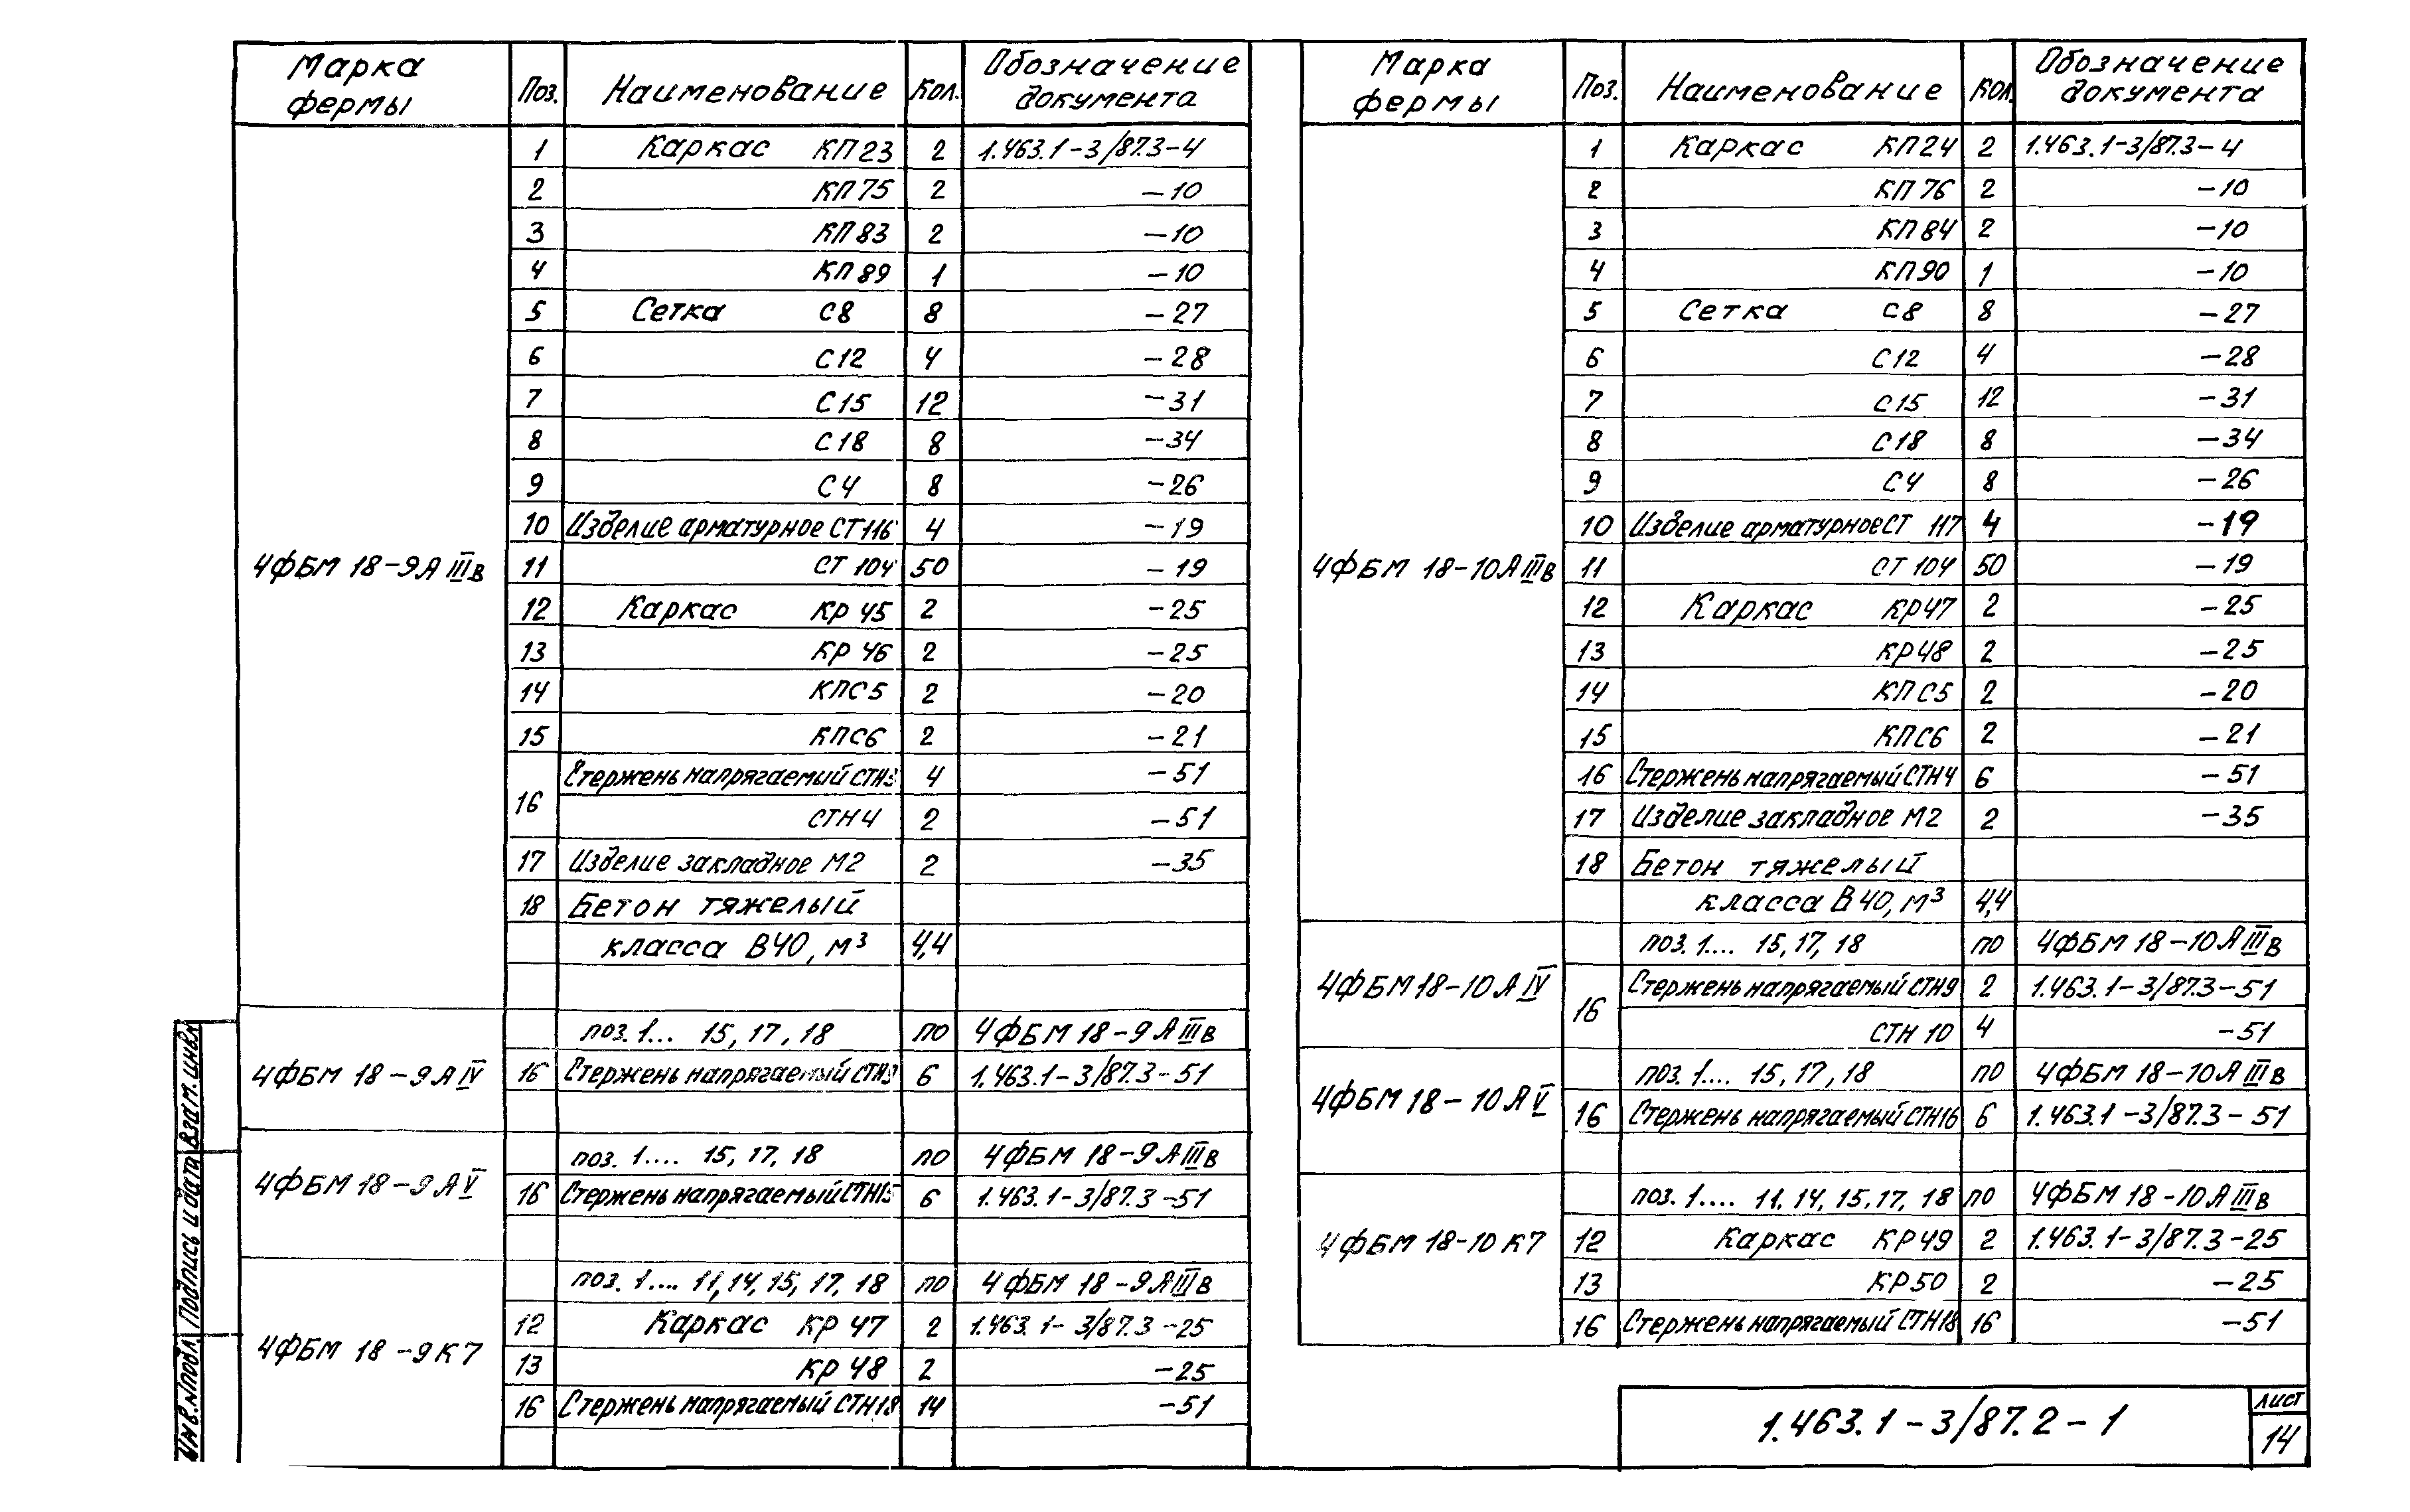 Марка фермы Поз. Наименование Кол. Обозначение документа
1 Каркас КП23 2 1.463.1-3/87.3-4
2 КП75 2 -10
3 КП83 2 -10
4 КП89 1 -10
5 Сетка С8 8 -27
6 С12 4 -28
7 С15 12 -31
8 С18 8 -34
9 С4 8 -26
10 Изделие арматурное СТ116 4 -19
4ФБМ 18-9АIIIв 11 СТ 104 50 -19
12 Каркас КР 45 2 -25
13 КР 46 2 -25
14 КПС5 2 -20
15 КПС6 2 -21
16 Стержень напрягаемый СТН3 4 -51
СТН4 2 -51
17 Изделие закладное М2 2 -35
18 Бетон тяжелый
класса В40, м³ 4,4
поз. 1... 15, 17, 18 по 4ФБМ 18-9АIIIв
4ФБМ 18-9АIV 16 Стержень напрягаемый СТН9 6 1.463.1-3/87.3-51
поз. 1.... 15, 17, 18 по 4ФБМ 18-9АIIIв
4ФБМ 18-9АV 16 Стержень напрягаемый СТН15 6 1.463.1-3/87.3-51
поз. 1.... 11, 14, 15, 17, 18 по 4ФБМ 18-9АIIIв
12 Каркас КР 47 2 1.463.1-3/87.3-25
4ФБМ 18-9К7 13 КР 48 2 -25
16 Стержень напрягаемый СТН18 14 -51
Марка фермы Поз. Наименование Кол. Обозначение документа
1 Каркас КП24 2 1.463.1-3/87.3-4
2 КП76 2 -10
3 КП84 2 -10
4 КП90 1 -10
5 Сетка С8 8 -27
6 С12 4 -28
7 С15 12 -31
8 С18 8 -34
9 С4 8 -26
10 Изделие арматурное СТ 117 4 -19
4ФБМ 18-10АIIIв 11 СТ 104 50 -19
12 Каркас КР47 2 -25
13 КР48 2 -25
14 КПС5 2 -20
15 КПС6 2 -21
16 Стержень напрягаемый СТН4 6 -51
17 Изделие закладное М2 2 -35
18 Бетон тяжелый
класса В40, м³ 4,4
поз. 1.... 15, 17, 18 по 4ФБМ 18-10АIIIв
4ФБМ 18-10АIV 16 Стержень напрягаемый СТН9 2 1.463.1-3/87.3-51
СТН 10 4 -51
поз. 1.... 15, 17, 18 по 4ФБМ 18-10АIIIв
4ФБМ 18-10АV 16 Стержень напрягаемый СТН16 6 1.463.1-3/87.3-51
поз. 1.... 11, 14, 15, 17, 18 по 4ФБМ 18-10АIIIв
4ФБМ 18-10К7 12 Каркас КР49 2 1.463.1-3/87.3-25
13 КР50 2 -25
16 Стержень напрягаемый СТН18 16 -51
1.463.1-3/87.2-1
лист
14
Инв.№подл. Подпись и дата Взам.инв.№